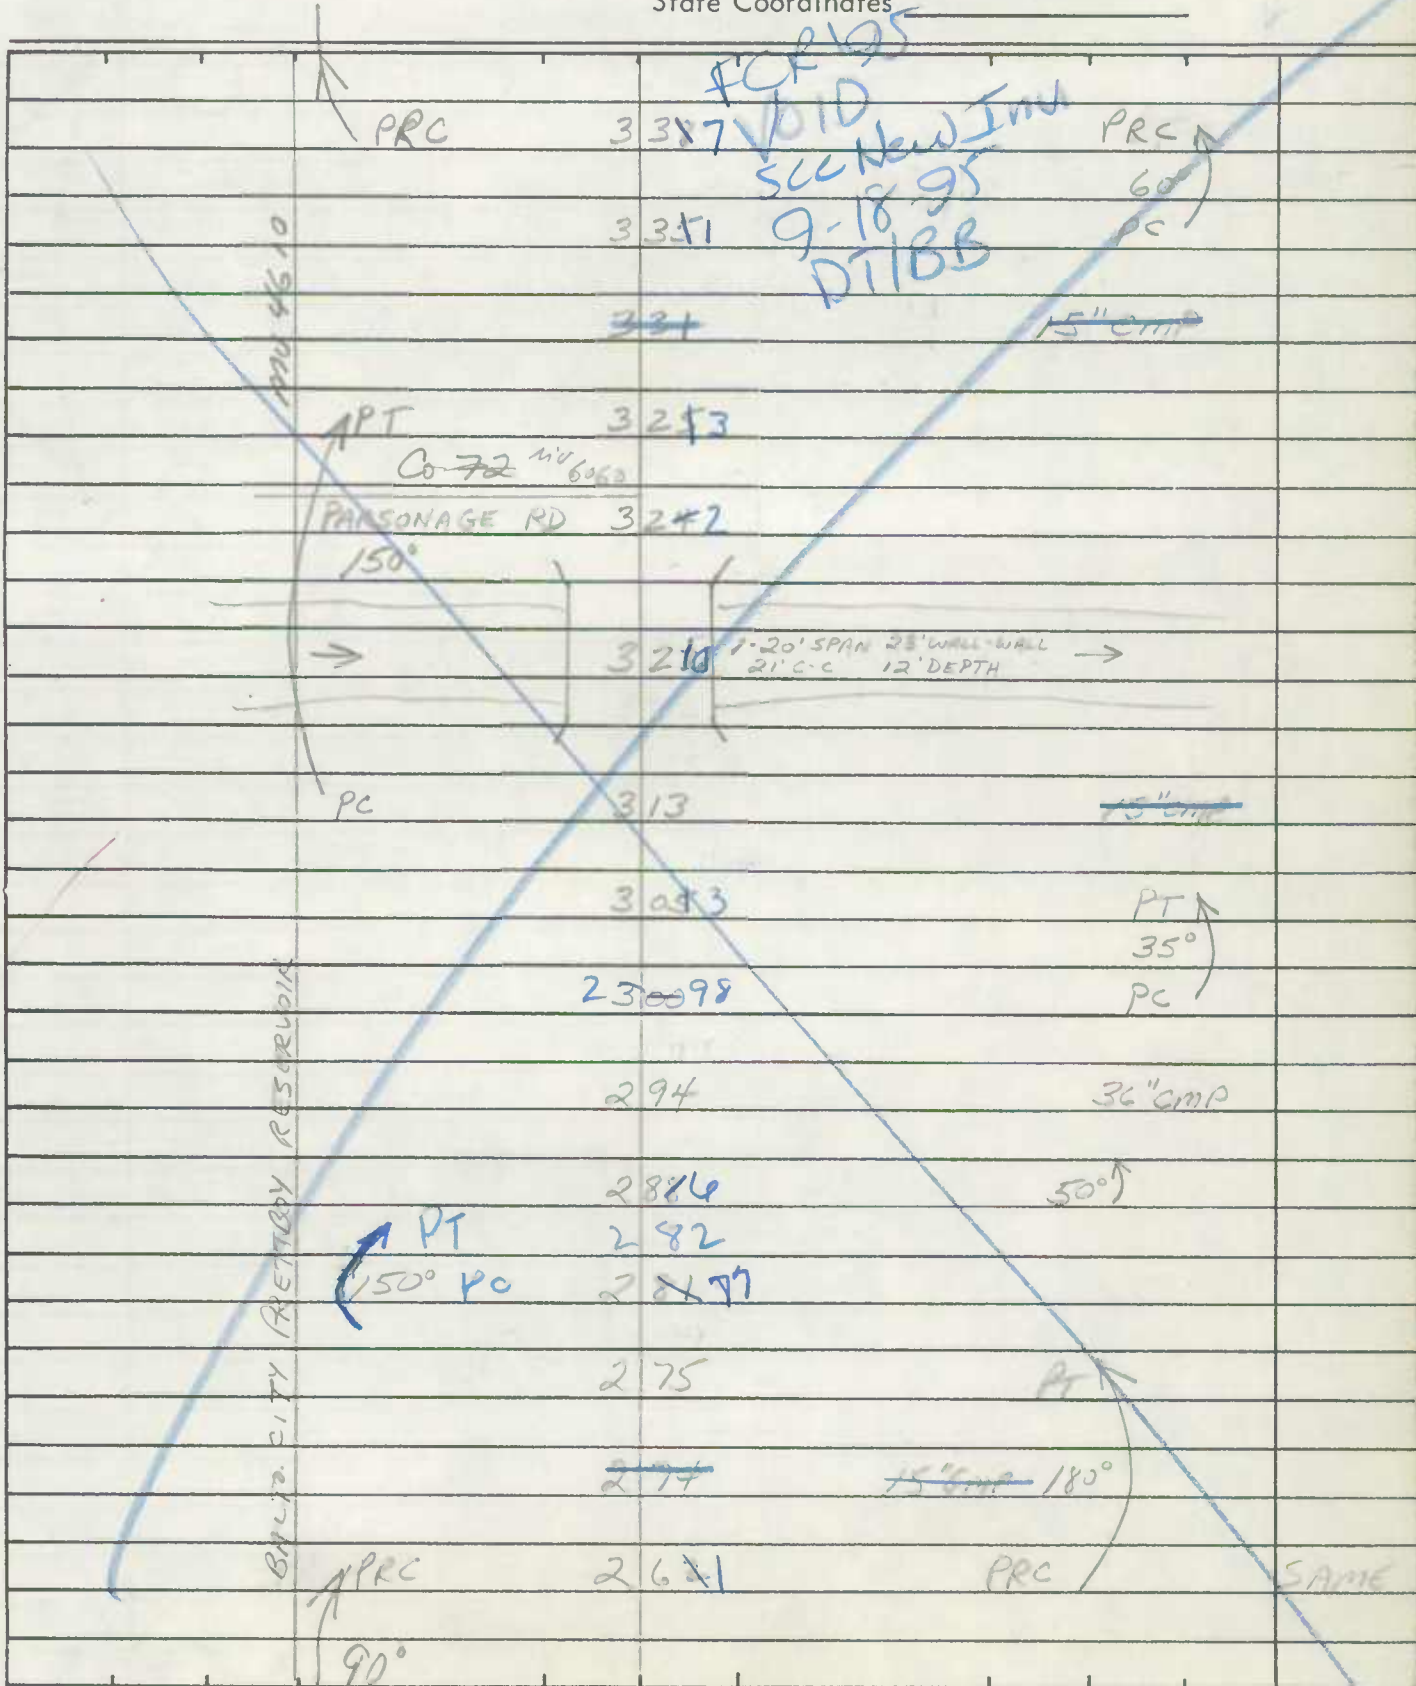 State Coordinates
FCR 195
VOID
See New Inv
9-18-95
DT/BB
PRC 337 PRC
60°
3351 PC
MU 4610
331 15" CMP
PT 3253
Co 72 MU 6060
PARSONAGE RD 3242
150°
3210 1-20' SPAN 23' WALL-WALL
21' C-C 12' DEPTH
PC 313 15" CMP
3053 PT
35°
230098 PC
BALTO. CITY PRETTBOY RESERVOIR
294 36" CMP
2886 50°
PT 282
150° PC 2877
275 PT
274 15" CMP 180°
PRC 261 PRC SAME
90°